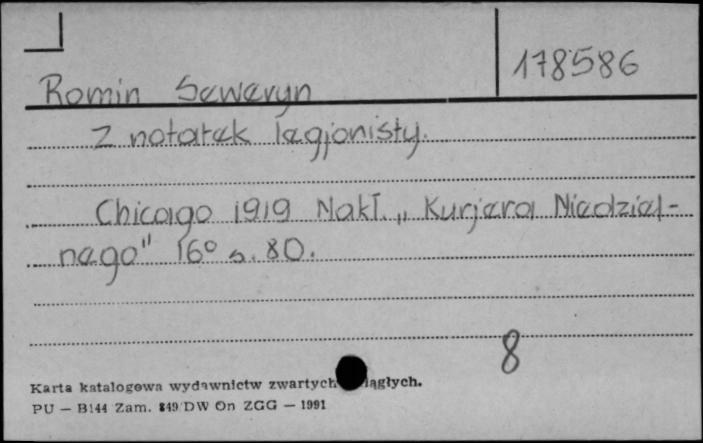 178586
Romin Seweryn
Z notatek legjonisty.
Chicago 1919 Nakł. „Kurjera Niedziel-
nego" 16° s. 80.
8
Karta katalogowa wydawnictw zwartych ciągłych.
PU — B144 Zam. 849/DW On ZGG — 1991